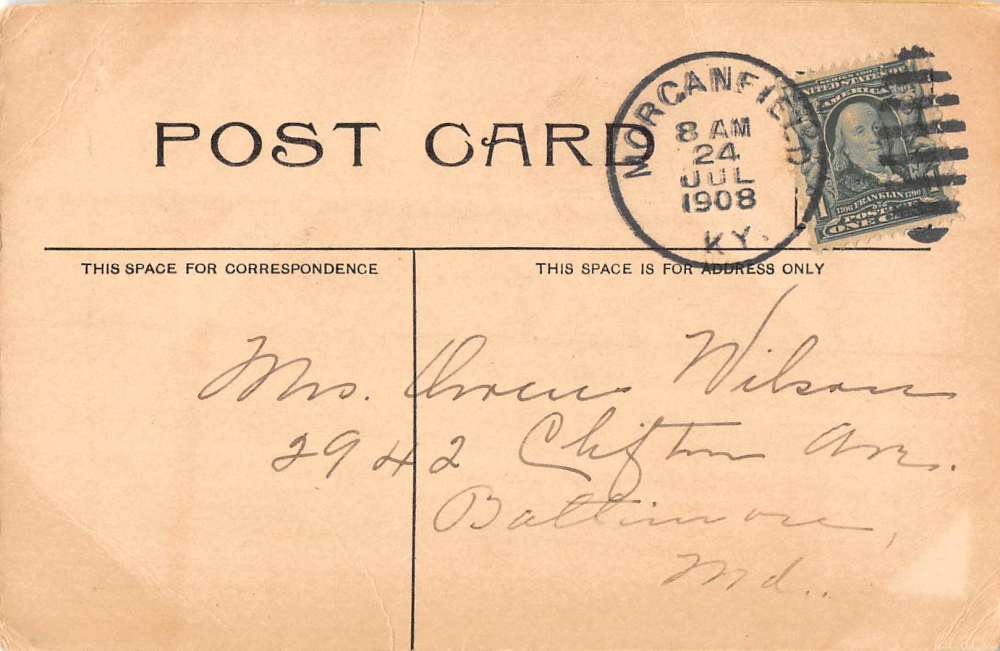 POST CARD
MORGANFIELD
8 AM
24
JUL
1908
KY.
SERIES 1902
UNITED STATES OF
AMERICA
1706 FRANKLIN 1790
POSTAGE
1 ONE CENT
THIS SPACE FOR CORRESPONDENCE
THIS SPACE IS FOR ADDRESS ONLY
Mrs. Owen Wilson
2942 Clifton Ave.
Baltimore,
Md..